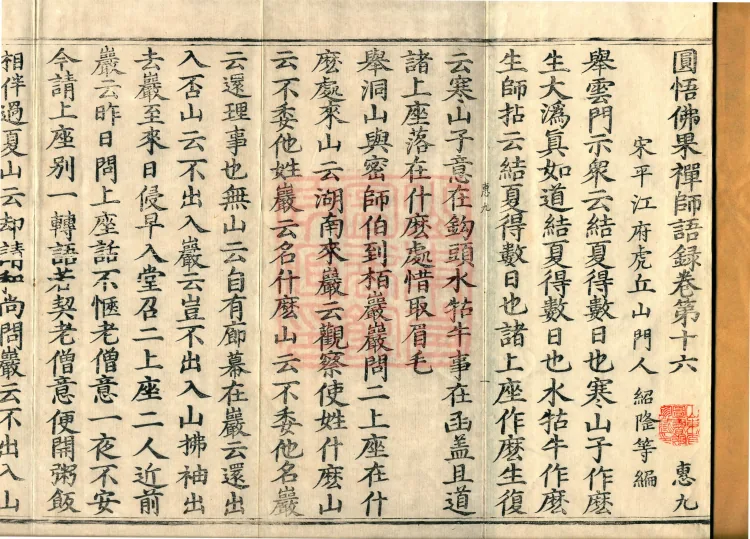 圓悟佛果禪師語録卷第十六 惠九
宋平江府虎丘山門人紹隆等編
舉雲門示衆云結夏得數日也寒山子作麽
生大潙眞如道結夏得數日也水牯牛作麽
生師拈云結夏得數日也諸上座作麽生復
惠九
云寒山子意在鈎頭水牯牛事在函盖且道
諸上座落在什麽處惜取眉毛
舉洞山與密師伯到栢巖巖問二上座在什
麽處來山云湖南來巖云觀察使姓什麽山
云不委他姓巖云名什麽山云不委他名巖
云還理事也無山云自有廊幕在巖云還出
入否山云不出入巖云豈不出入山拂袖出
去巖至來日侵早入堂召二上座二人近前
巖云昨日問上座話不愜老僧意一夜不安
今請上座別一轉語若契老僧意便開粥飯
相伴過夏山云却請和尚問巖云不出入山